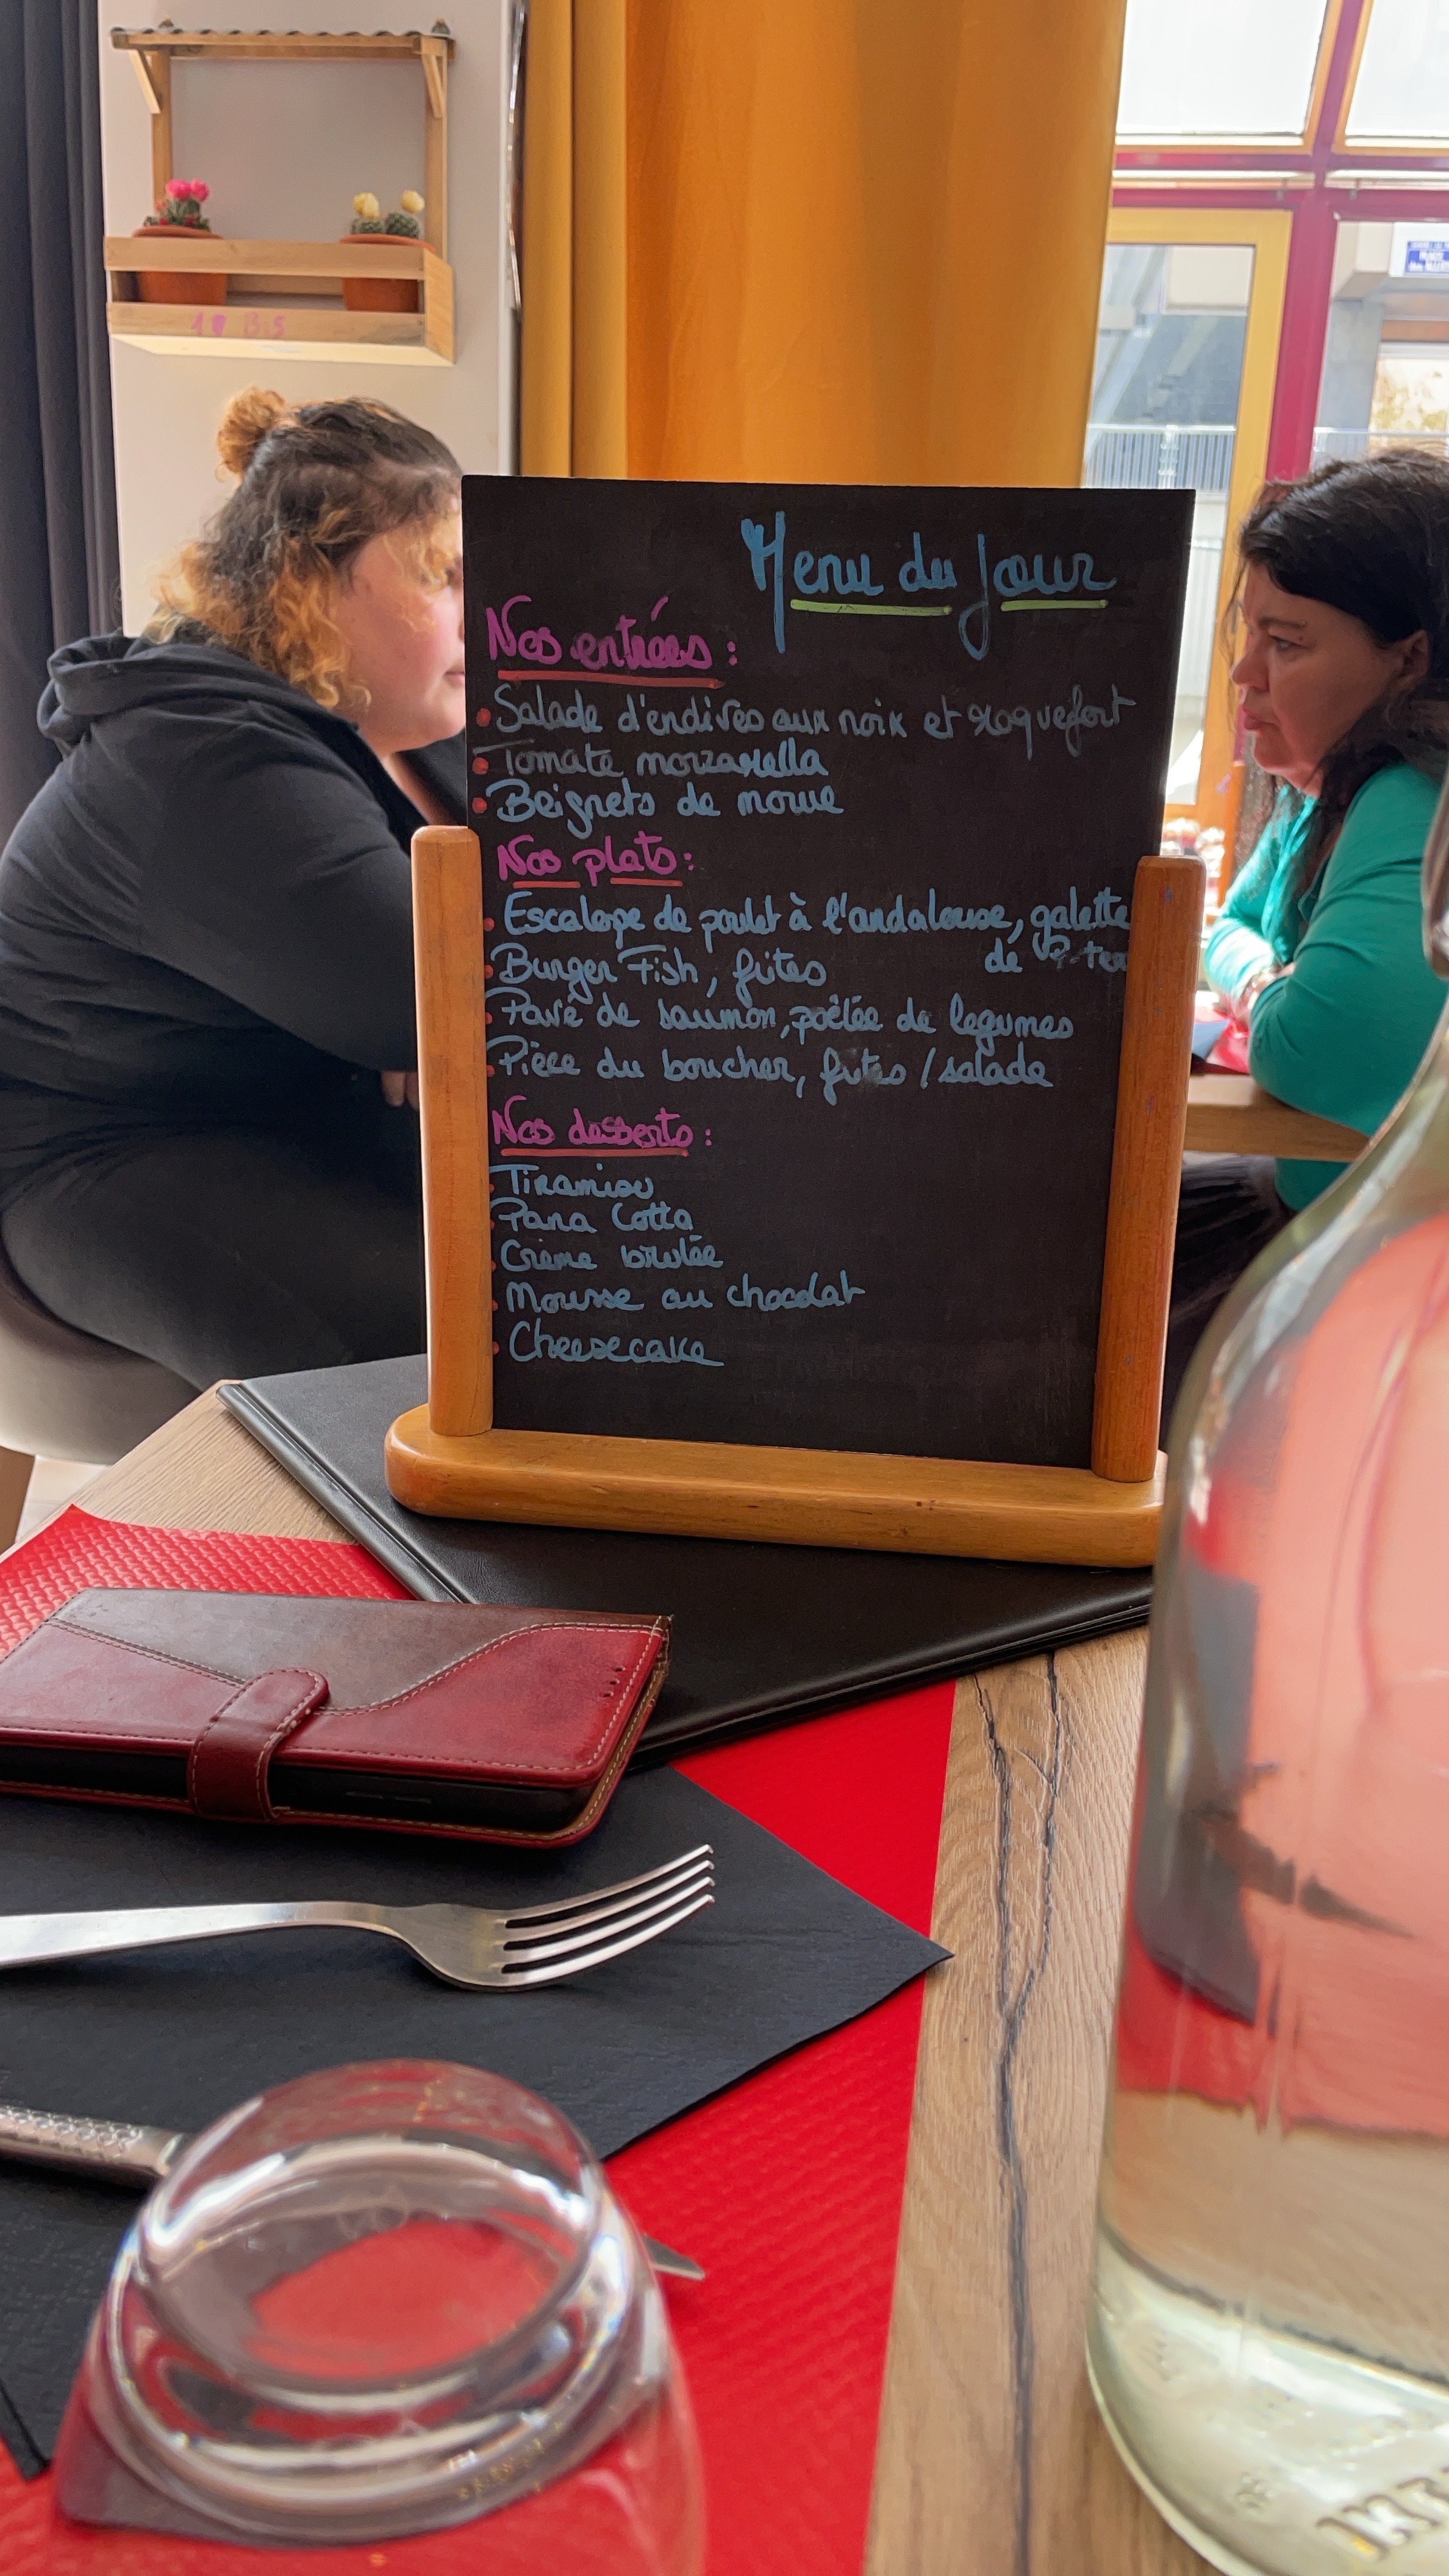 Menu du Jour
Nos entrées :
Salade d'endives aux noix et roquefort
Tomate mozzarella
Beignets de morue
Nos plats :
Escalope de poulet à l'andalouse, galette
de P. ter
Burger Fish, frites
Pavé de saumon, poêlée de legumes
Pièce du boucher, frites / salade
Nos desserts :
Tiramisu
Pana Cotta
Crème brulée
Mousse au chocolat
Cheesecake
PLACE